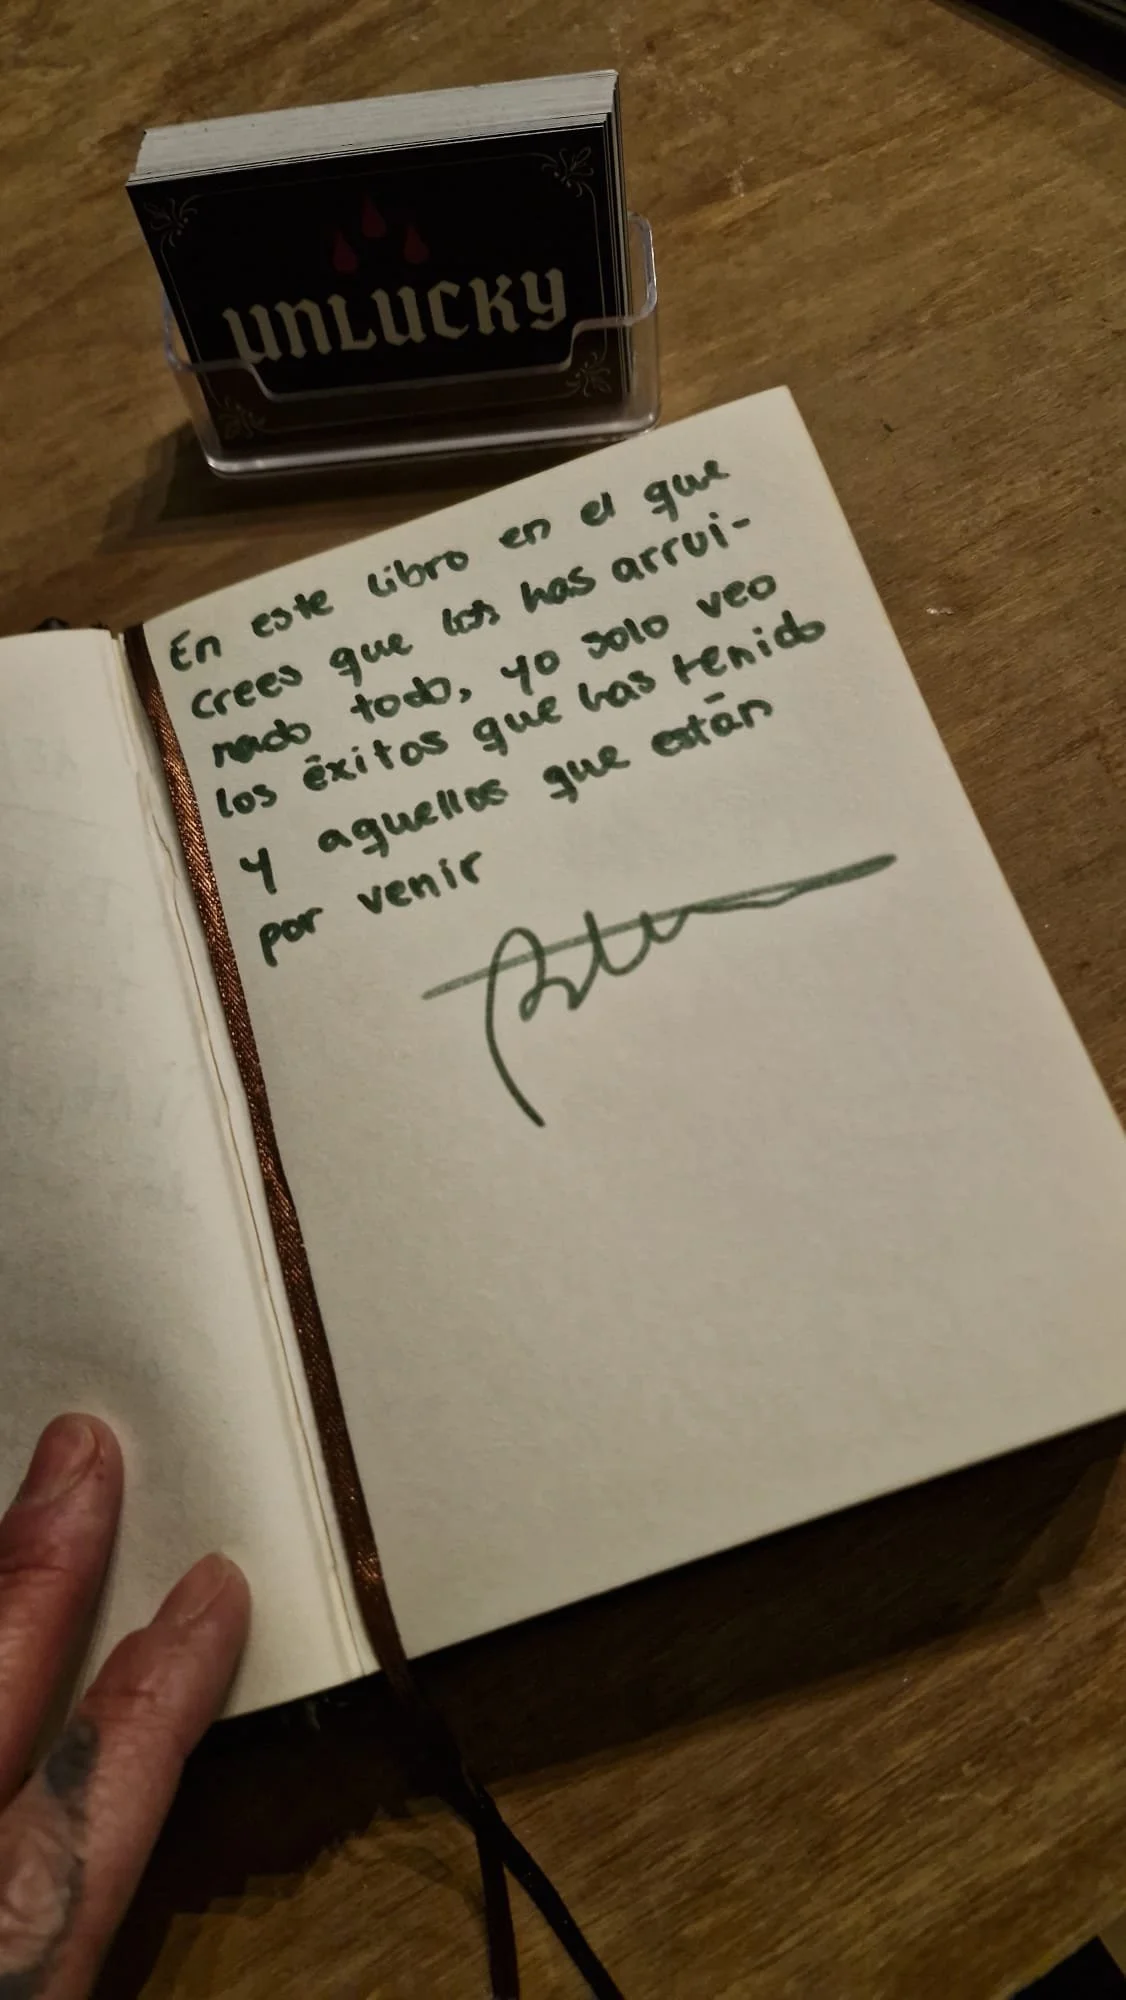 UNLUCKY
En este libro en el que
crees que los has arrui-
nado todo, yo solo veo
los éxitos que has tenido
y aquellos que están
por venir